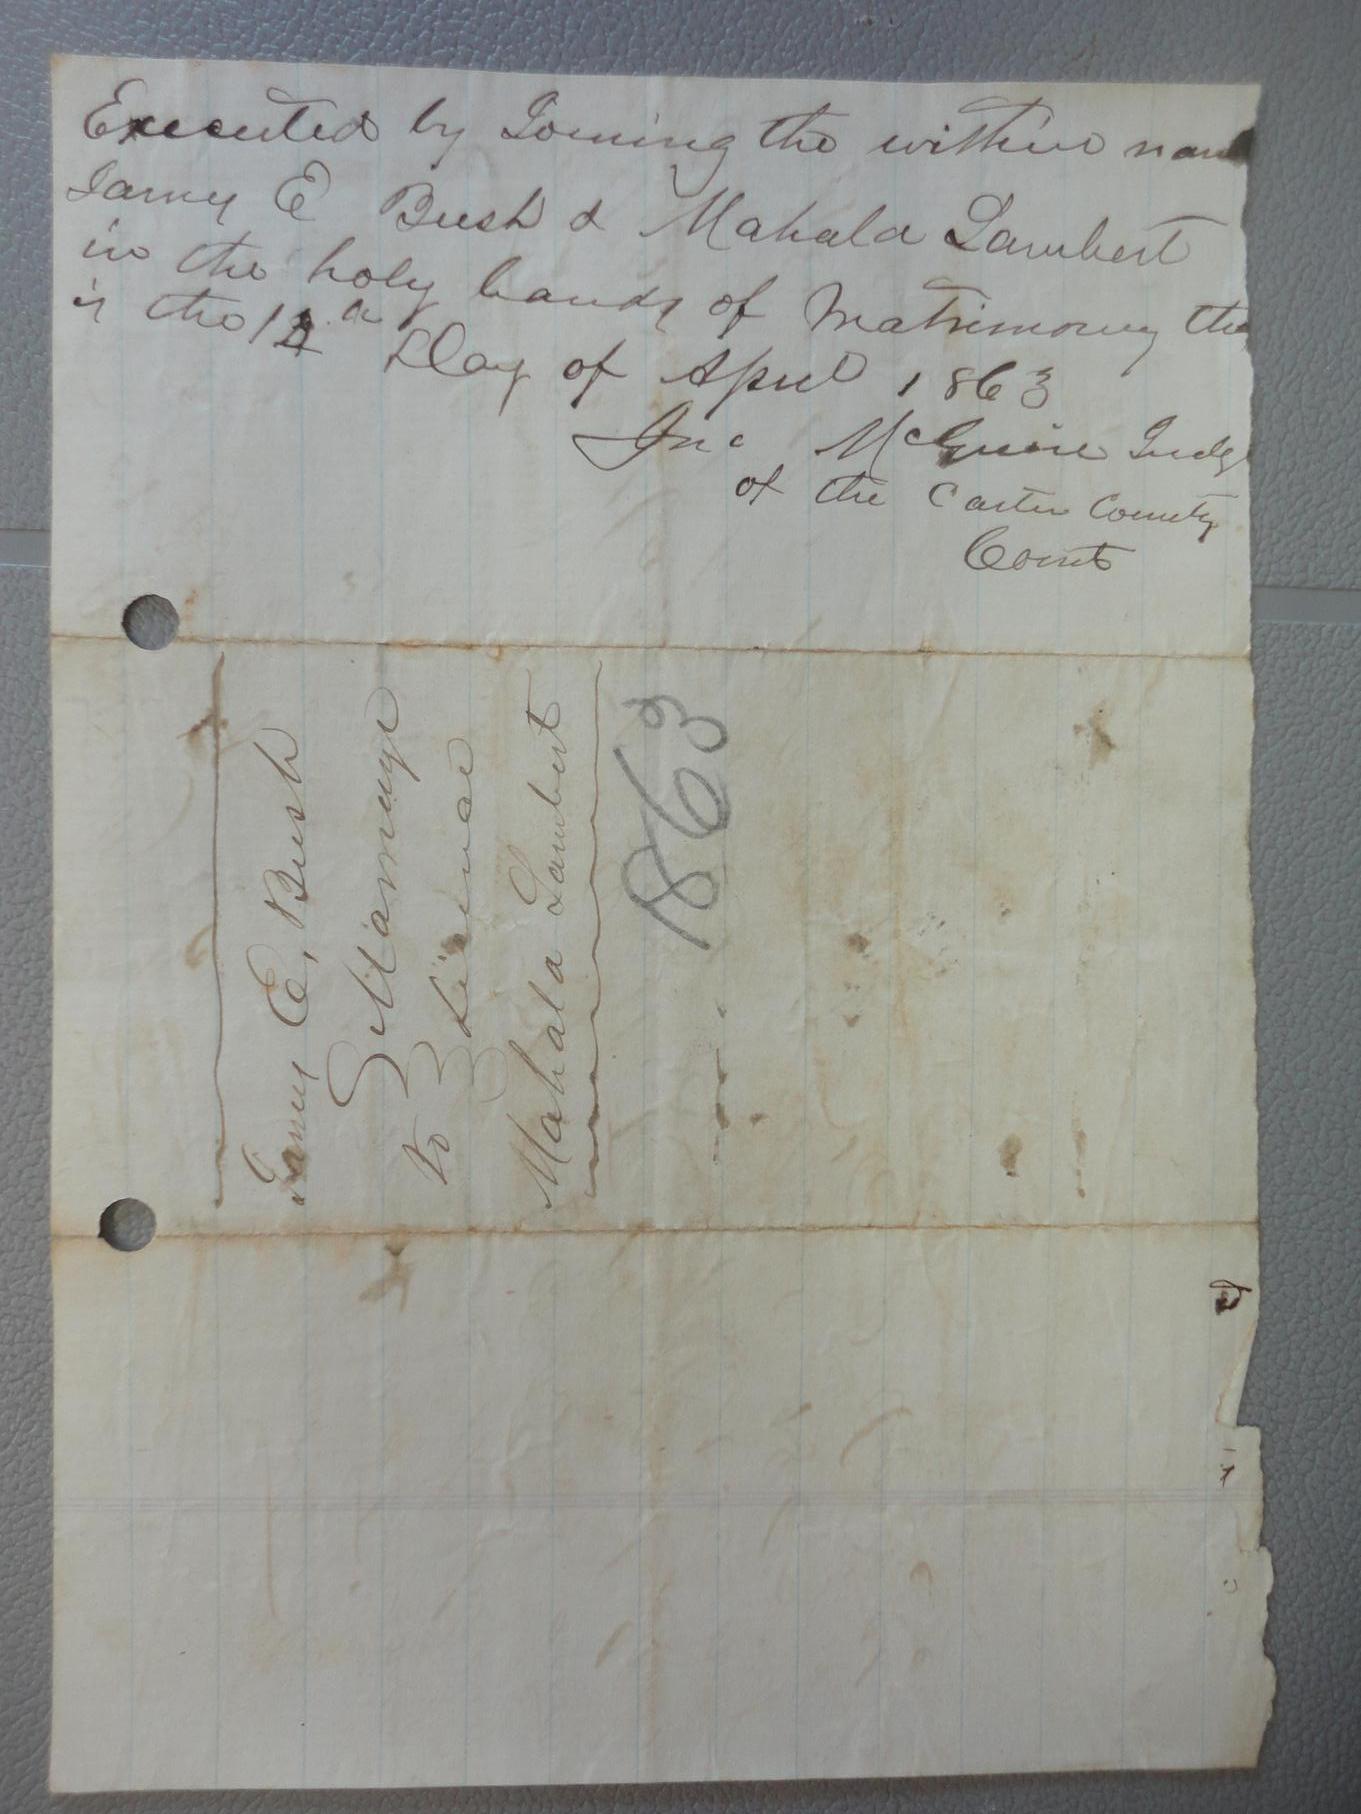 Executed by Joining the within nam
James E Bush & Mahala Lambert
in the holy bands of Matrimony the
is the 12 Day of April 1863
Jno McGuire Judg
of the Carter County
Court
James E. Bush
to Marriage
License
Mahala Lambert
1863